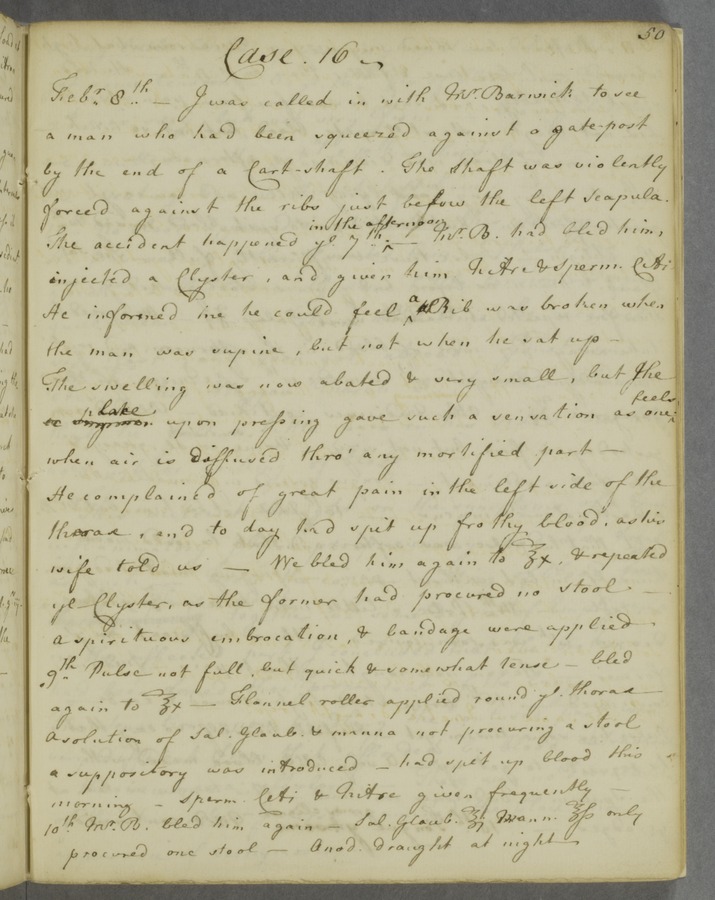 50
Case. 16
Febr. 8th. — I was called in with Mr. Barwick to see
a man who had been squeezed against a gate-post
by the end of a Cart-shaft. The shaft was violently
forced against the ribs just below the left scapula.
in the afternoon
The accident happened ye. 7th. ^ — Mr. B. had bled him,
injected a Clyster, and given him Nitre & sperm. Ceti
He informed me he could feel a Rib was broken when
the man was supine, but not when he sat up —
The swelling was now abated & very small, but the
place upon pressing gave such a sensation as one feels
when air is diffused thro' any mortified part —
He complained of great pain in the left side of the
thorax, and to day had spit up frothy blood, as his
wife told us — We bled him again to ℥x. & repeated
ye Clyster, as the former had procured no stool —
a spirituous embrocation, & bandage were applied
9th. Pulse not full, but quick & somewhat tense — bled
again to ℥x — Flannel roller applied round ye. thorax —
A solution of Sal. Glaub. & manna not procuring a stool
a suppository was introduced — had spit up blood this
morning — Sperm. Ceti & Nitre given frequently —
10th. Mr. B. bled him again — Sal. Glaub. ℥j Mann. ℥ß only
procured one stool — Anod. draught at night —